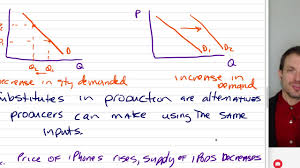 P
D
Q₂ Q₁ Q
D₁ D₂
Q
decrease in qty demanded
increase in
demand
Substitutes in production are alternatives
producers can make using the same
inputs.
Price of iPhones rises, supply of iPods decreases